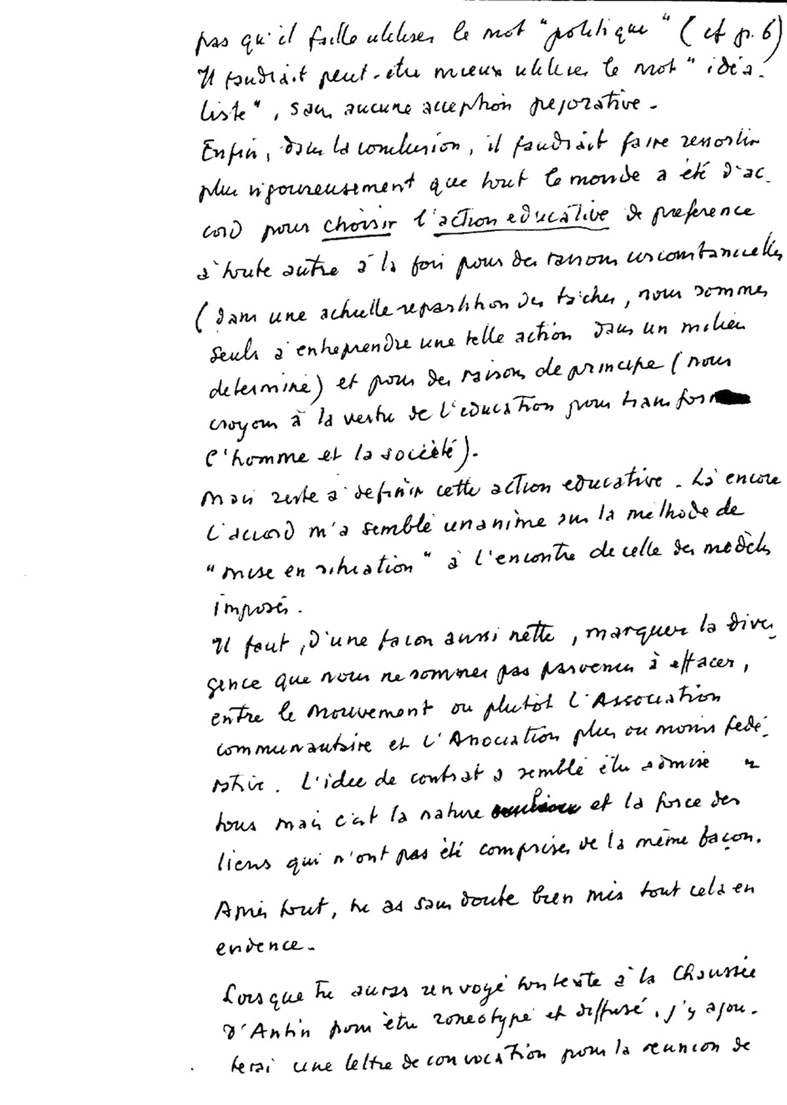 pas qu'il faille utiliser le mot "politique" (cf p. 6)
Il faudrait peut-être mieux utiliser le mot "idéa-
liste", sans aucune acception pejorative.
Enfin, dans la conclusion, il faudrait faire ressortir
plus vigoureusement que tout le monde a été d'ac-
cord pour choisir l'action educative de preference
à toute autre à la fois pour des raisons circonstancielles
(dans une actuelle repartition des tâches, nous sommes
seuls à entreprendre une telle action dans un milieu
determiné) et pour des raisons de principe (nous
croyons à la vertu de l'education pour transfor
l'homme et la société).
Mais reste à definir cette action educative. Là encore
l'accord m'a semblé unanime sur la méthode de
"mise en situation" à l'encontre de celle des modèles
imposés.
Il faut, d'une facon aussi nette, marquer la diver-
gence que nous ne sommes pas parvenus à effacer,
entre le Mouvement ou plutôt l'Association
communautaire et l'Association plus ou moins fedé-
rative. L'idée de contrat a semblé être admise
tous mais c'est la nature et la force des
liens qui n'ont pas été comprises de la même façon.
Après tout, tu as sans doute bien mis tout cela en
evidence.
Lorsque tu auras renvoyé ton texte à la Chaussée
d'Antin pour être roneotypé et diffusé, j'y ajou-
terai une lettre de convocation pour la reunion de